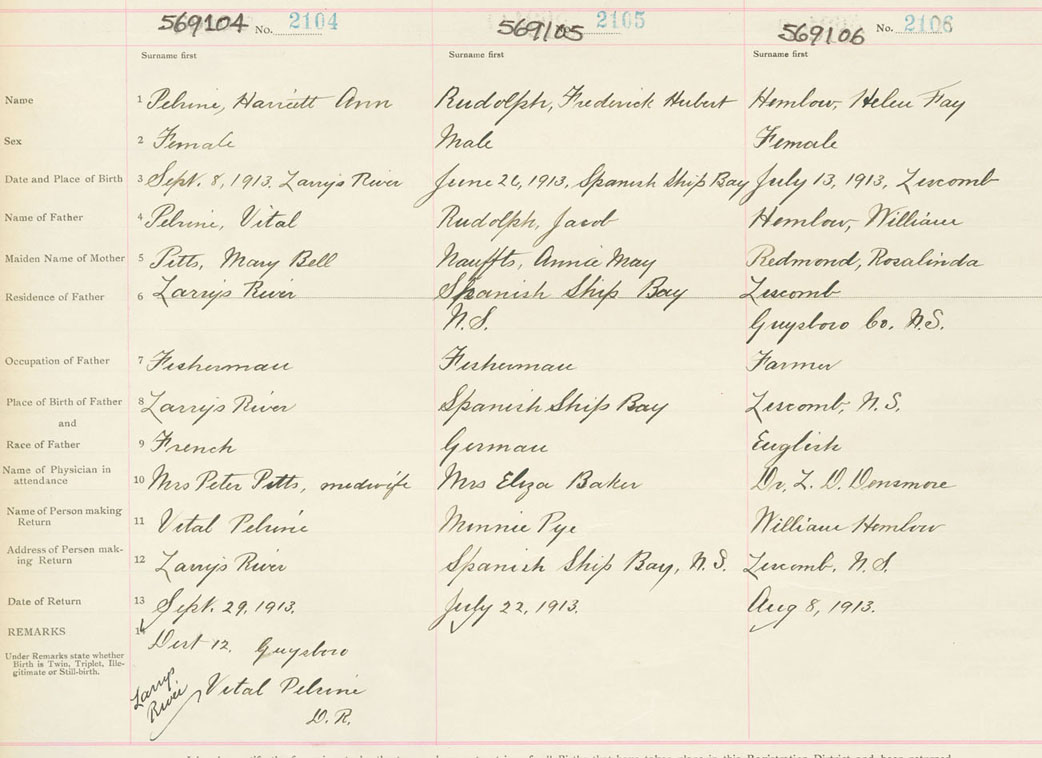 569104 No. 2104 569105 2105 569106 No. 2106
Surname first Surname first Surname first
Name 1 Pelrine, Harriett Ann Rudolph, Frederick Hubert Hemlow, Helen Fay
Sex 2 Female Male Female
Date and Place of Birth 3 Sept. 8, 1913, Larrys River June 26, 1913, Spanish Ship Bay July 13, 1913, Liscomb
Name of Father 4 Pelrine, Vital Rudolph, Jacob Hemlow, William
Maiden Name of Mother 5 Pitts, Mary Bell Nauffts, Annie May Redmond, Rosalinda
Residence of Father 6 Larrys River Spanish Ship Bay Liscomb
N.S. Guysboro Co. N.S.
Occupation of Father 7 Fisherman Fisherman Farmer
Place of Birth of Father 8 Larrys River Spanish Ship Bay Liscomb, N.S.
and
Race of Father 9 French German English
Name of Physician in
attendance 10 Mrs Peter Pitts, midwife Mrs Eliza Baker Dr. L. D. Densmore
Name of Person making
Return 11 Vital Pelrine Minnie Pye William Hemlow
Address of Person mak-
ing Return 12 Larrys River Spanish Ship Bay, N.S. Liscomb, N.S.
Date of Return 13 Sept. 29, 1913. July 22, 1913. Aug 8, 1913.
REMARKS 14 Dist 12. Guysboro
Under Remarks state whether
Birth is Twin, Triplet, Ille-
gitimate or Still-birth.
Larrys
River Vital Pelrine
D.R.